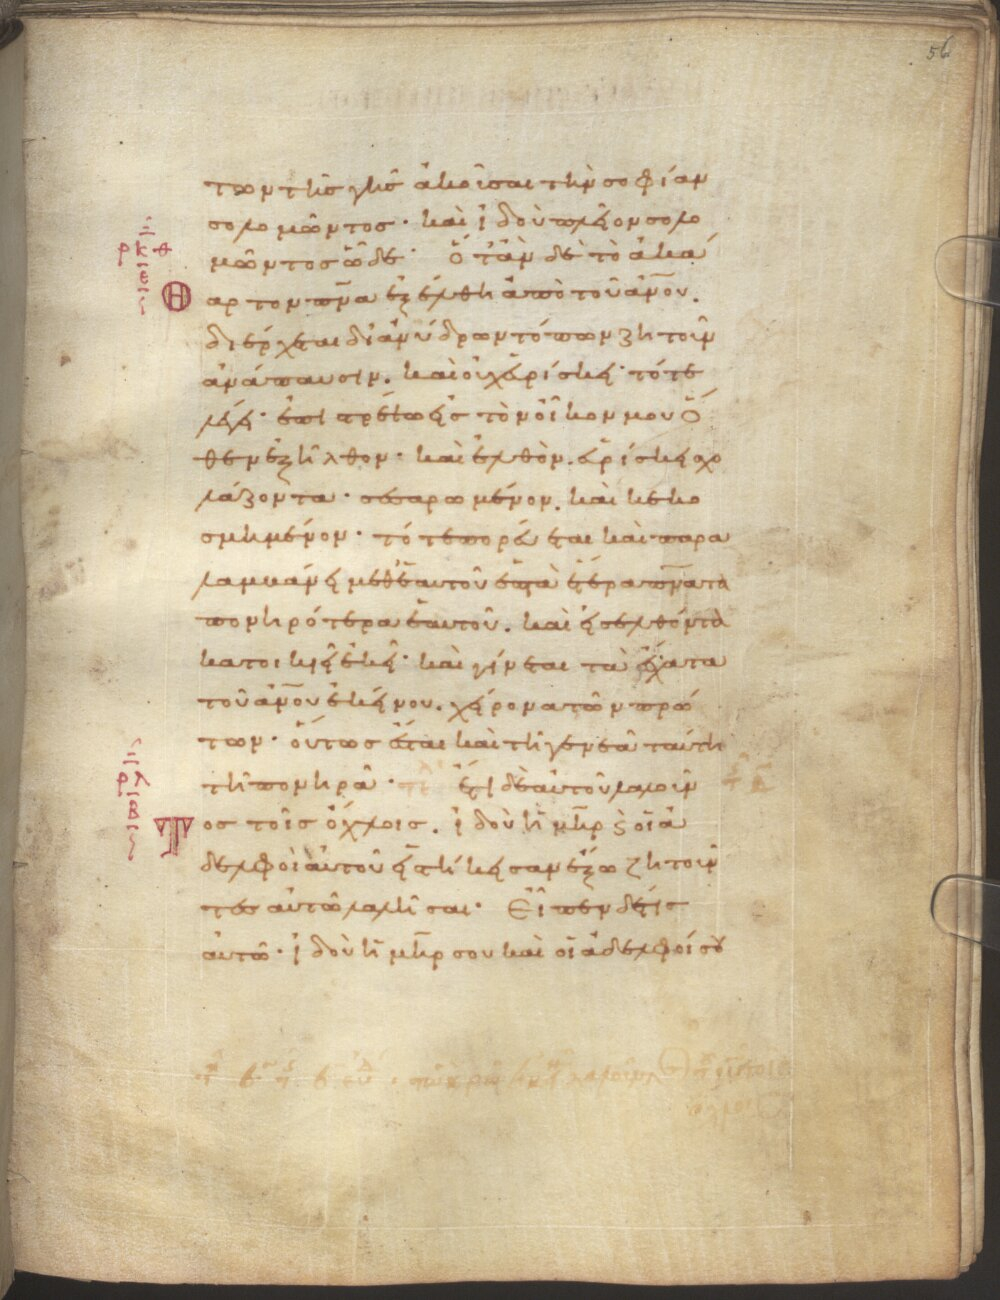 56
των τῆς γῆς ἀκοῦσαι τὴν σοφίαν
σολομῶντος· καὶ ἰδοὺ πλεῖον σολο
μῶντος ὧδε· Ὅταν δὲ τὸ ἀκά
ρκθ
ε
θαρτον πν̅α ἐξέλθη ἀπὸ τοῦ ἀν̅ου.
διέρχεται δι ἀνύδρων τόπων ζητοῦν
ἀνάπαυσιν. καὶ οὐχ εὑρίσκει· τότε
λέγει· ἐπιστρέψω εἰς τὸν οἶκον μου ὅ
θεν ἐξῆλθον· καὶ ἐλθὸν. εὑρίσκει σχο
λάζοντα· σεσαρωμένον. καὶ κεκο
σμημένον· τότε πορεύεται καὶ παρα
λαμβάνει μεθ ἑαυτοῦ ἑπτὰ ἕτερα πν̅ατα
πονηρότερα ἑαυτοῦ. καὶ εἰσελθόντα
κατοικεῖ ἐκεῖ· καὶ γίνεται τὰ ἔσχατα
τοῦ ἀν̅ου ἐκείνου. χείρονα τῶν πρώ
των· οὕτως ἔσται καὶ τῆ γενεᾶ ταύτη
τῆ πονηρᾶ· Ἔτι δὲ αὐτοῦ λαλοῦν
ρλ
β
τος τοῖς ὄχλοις. ἰδοὺ ἡ μη̅ρ ϗ οἱ ἀ
δελφοὶ αὐτοῦ εἱστήκεισαν ἔξω ζητοῦν
τες αὐτῶ λαλῆσαι· Εἶπεν δέ τις
αὐτῶ· ἰδοὺ ἡ μη̅ρ σου καὶ οἱ ἀδελφοί σου